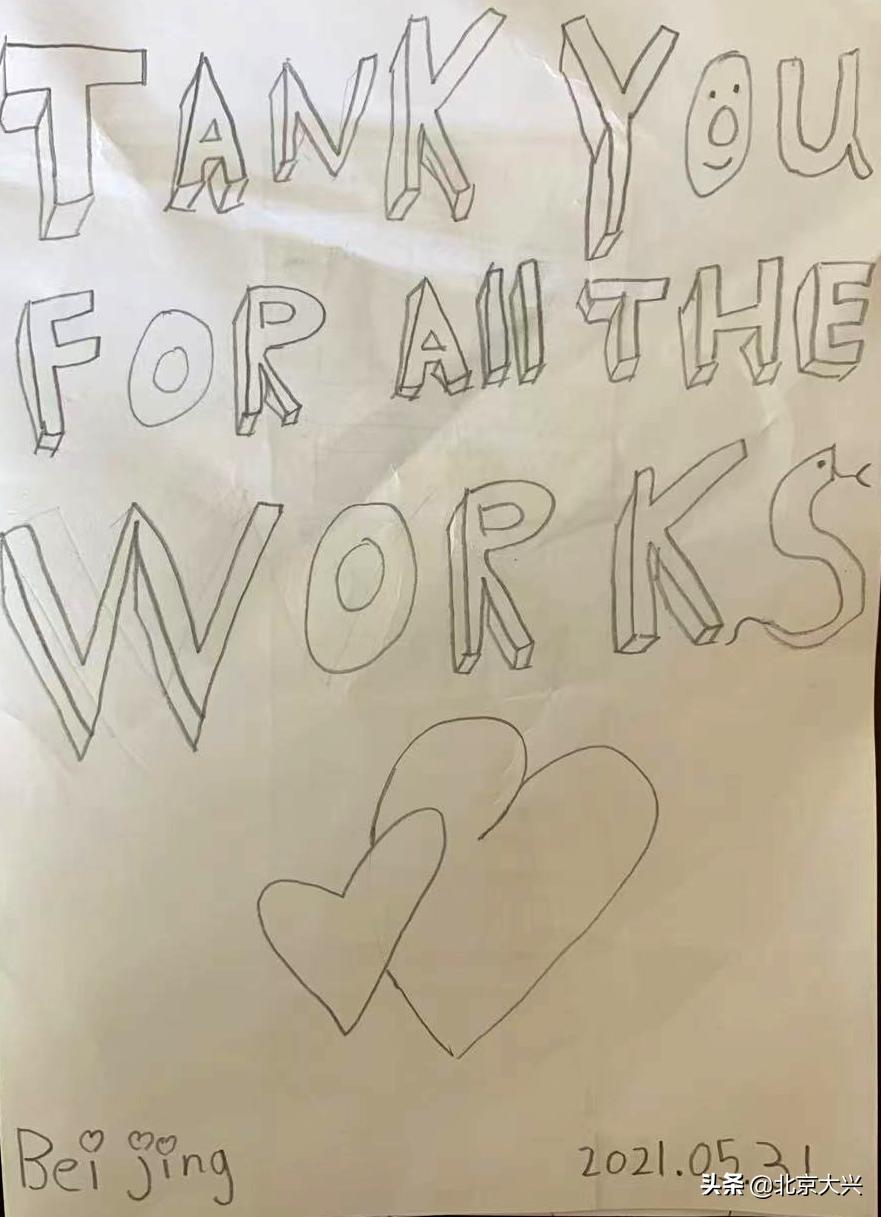 TANK YOU
FOR All THE
WORKS
Beijing
2021.05.31
头条 @北京大兴